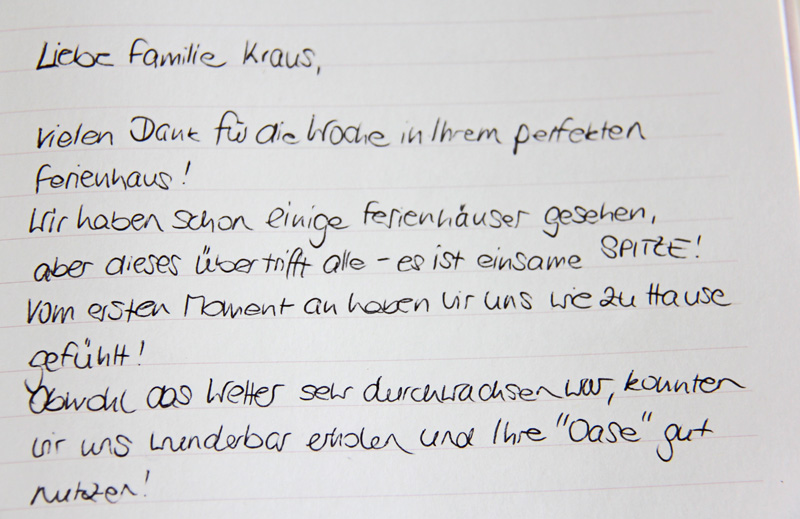 Liebe Familie Kraus,
vielen Dank für die Woche in Ihrem perfekten
Ferienhaus!
Wir haben schon einige Ferienhäuser gesehen,
aber dieses übertrifft alle - es ist einsame SPITZE!
Vom ersten Moment an haben wir uns wie zu Hause
gefühlt!
Obwohl das Wetter sehr durchwachsen war, konnten
wir uns wunderbar erholen und Ihre "Oase" gut
nutzen!